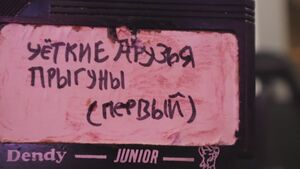 УЁТКИЕ ДРУЗЬЯ
ПРЫГУНЫ
(ПЕРВЫЙ)
Dendy JUNIOR